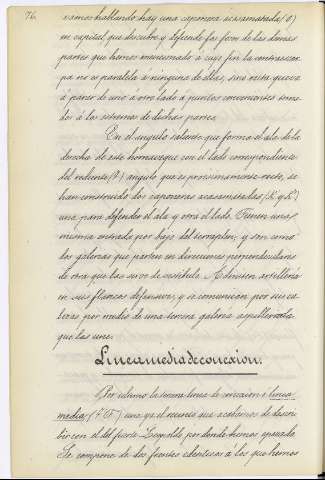 76.
vamos hallando hay una caponera acasamatada (O)
en capital que descubre y defiende los fosos de las demas
partes que hemos mencionado a cuyo fin la contraescar-
pa no es paralela á ninguna de ellas, sino recta queva
á parar de uno á otro lado á puntos convenientes
dos á los estremos de dichas partes.
En el angulo saliente que forma el ala de la
derecha de este hornaveque con el lado correspondiente
del rediente (P) angulo que es proximamente recto, se
han construido dos caponeras acasamatadas (
una para defender el ala y otra el lado. Tienen una
misma entrada por bajo del terraplen, y son como
dos galerias que parten en direcciones perpendiculares
de otra que las sirve de vestibulo. Admiten artilleria
en sus flancos defensivos, y se comunican por sus ca-
bezas por medio de una tercera galeria aspillerada
que las une.
Linea media de conexion.
Por ultimo la tercera linea de conexion ó linea
media ( une ya el recinto que acabamos de descri-
bir con el del fuerte Leopoldo por donde hemos empezado
Se compone de dos frentes identicos á los que hemos